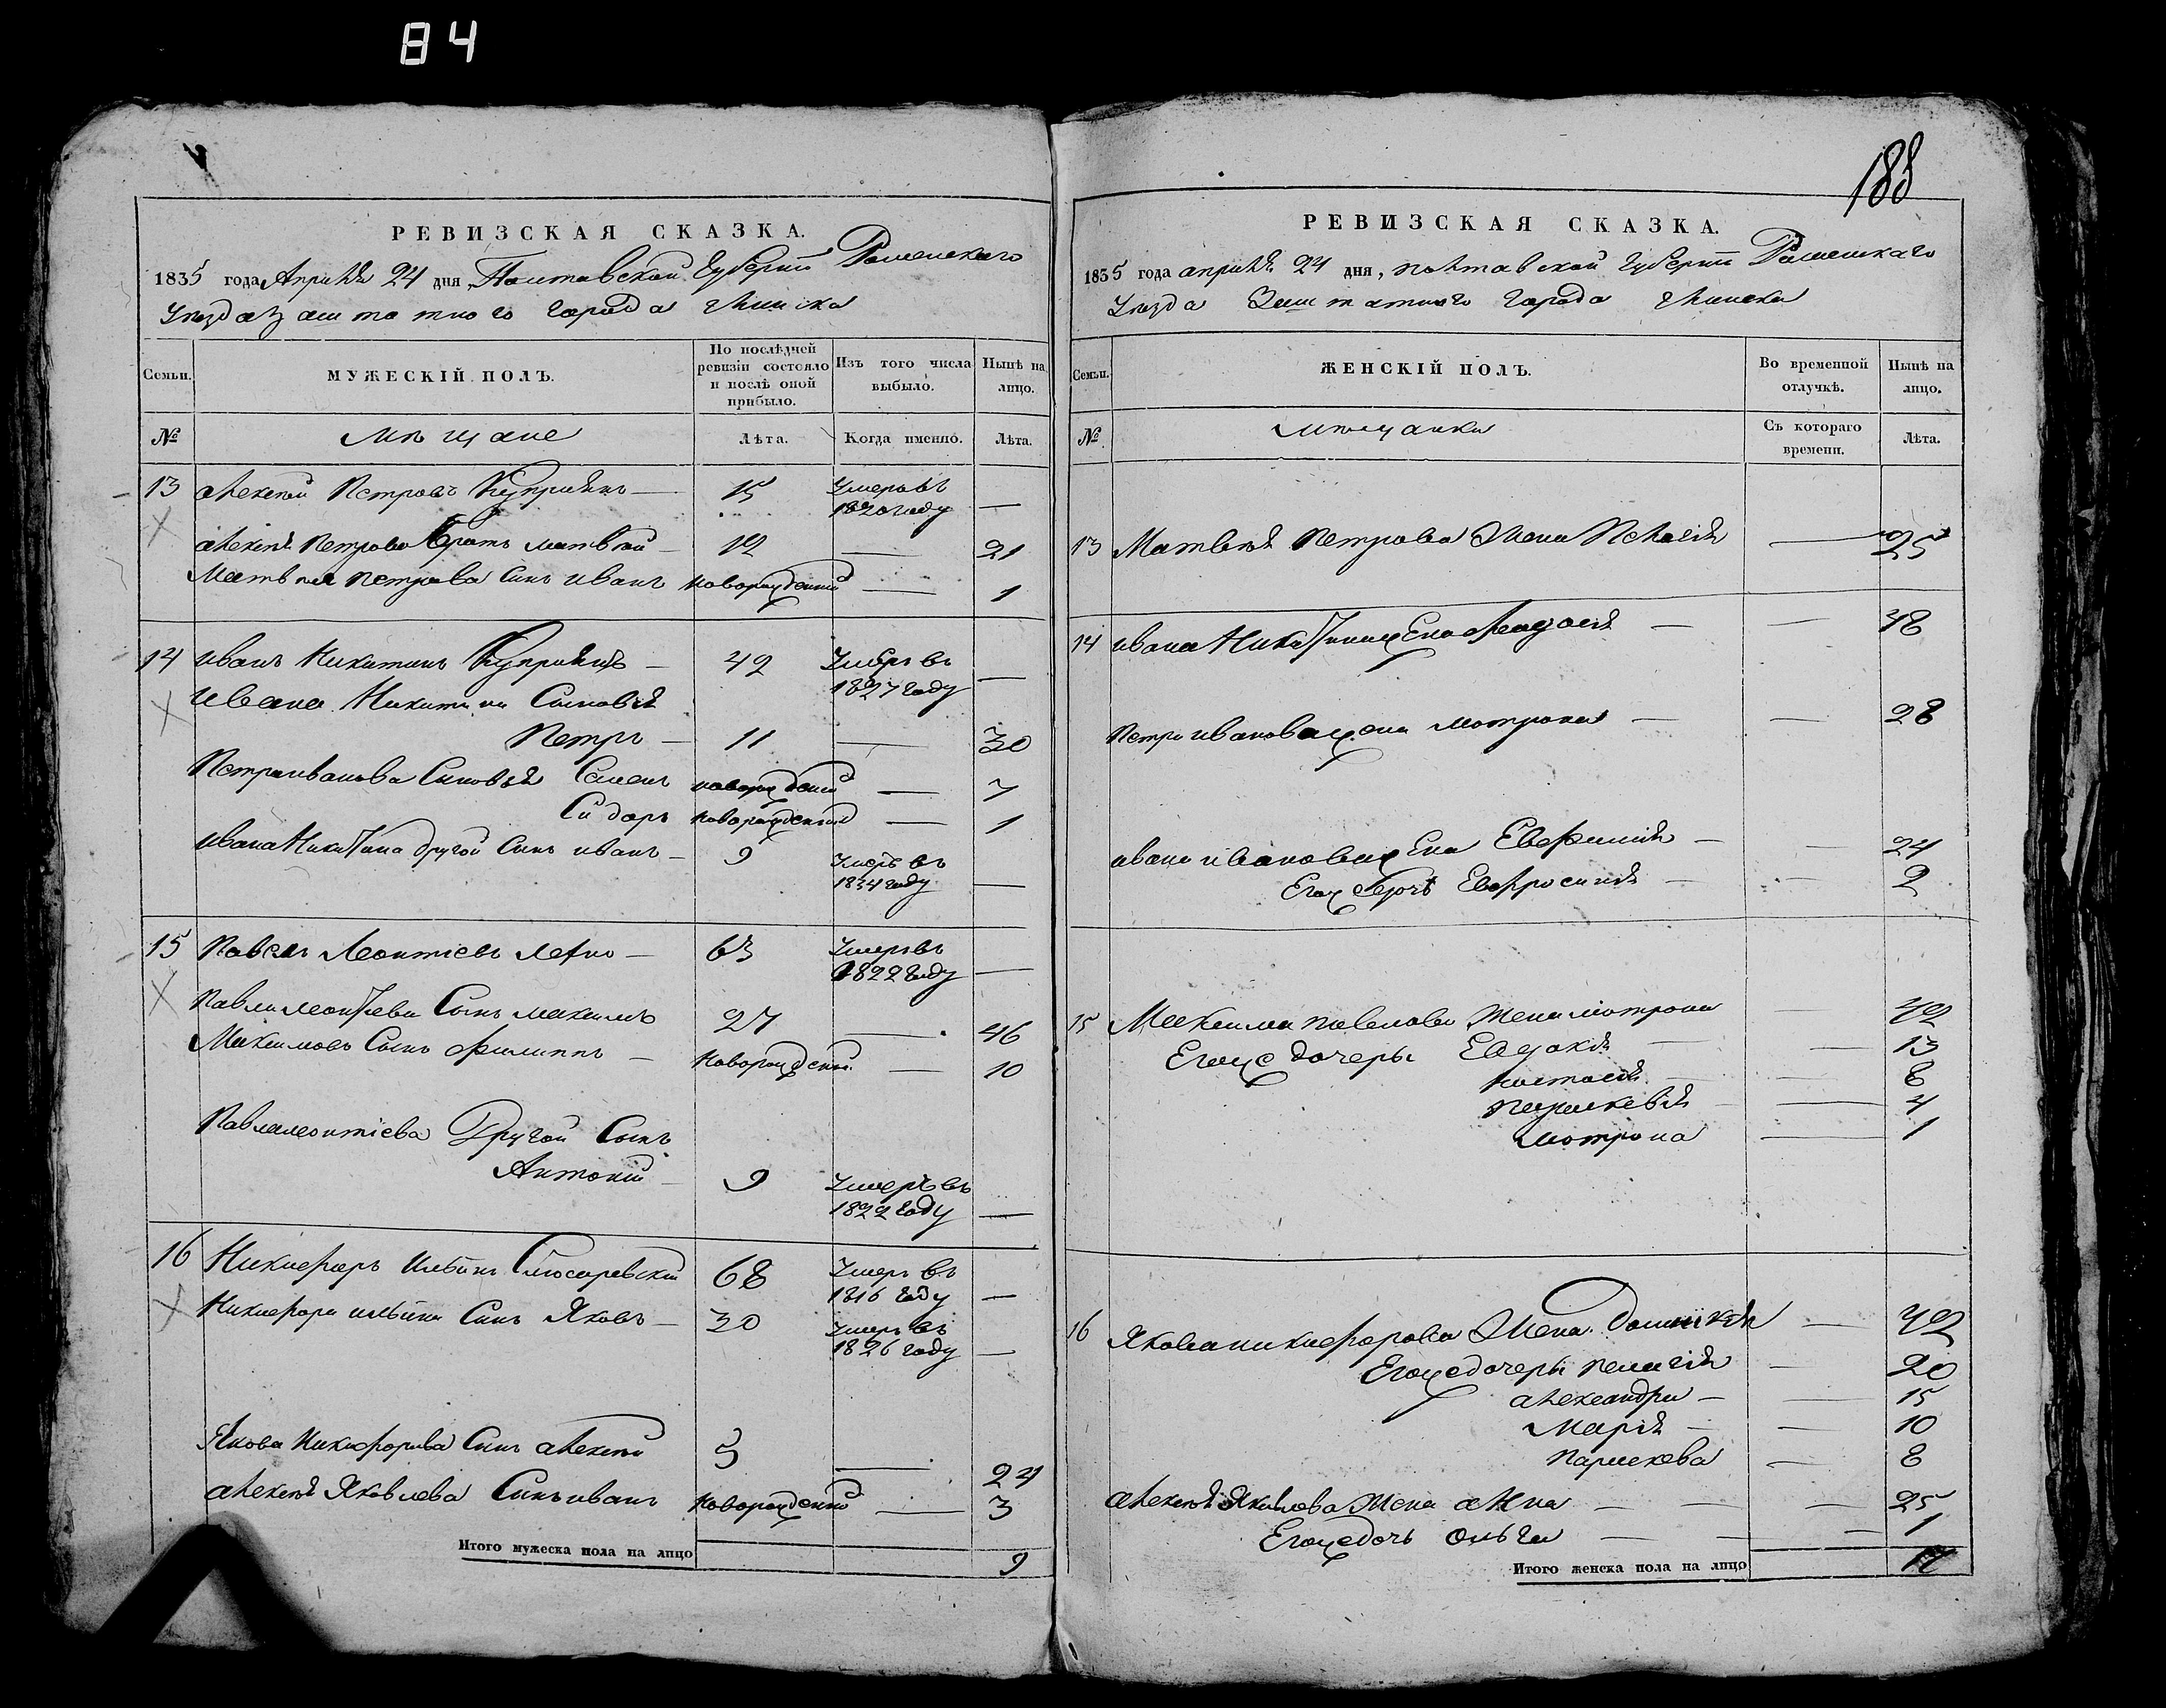 84
188
РЕВИЗСКАЯ СКАЗКА.
1835 года Апрѣля 24 дня, Полтавской Губерніи Роменскаго
Уѣзда заштатного города Глинска
Семьи.
МУЖЕСКІЙ ПОЛЪ.
По послѣдней ревизіи состояло и послѣ оной прибыло.
Изъ того числа выбыло.
Нынѣ на лицо.
№
Мѣщане
Лѣта.
Когда именно.
Лѣта.
13 Алексѣй Петровъ — 15 Умеръ въ 1820 году —
Алексѣя Петрова братъ Матвѣй — 12 — 21
Матвѣя Петрова Сынъ Иванъ новорожденный — 1
14 Иванъ Никитинъ — 42 Умеръ въ 1827 году —
Ивана Никитина Сыновья
Петръ — 11 — 30
Петра Иванова Сыновья Семенъ новорожденный — 7
Сидоръ новорожденный — 1
Ивана Никитина другой Сынъ Иванъ — 9 Умеръ въ 1834 году —
15 Павелъ Леонтіевъ — 63 Умеръ въ 1822 году —
Павла Леонтіева Сынъ Максимъ 27 — 46
Максимовъ Сынъ Филиппъ — новорожденный — 10
Павла Леонтіева Другой Сынъ
Антоній — 9 Умеръ въ 1822 году —
16 Никифоръ Ильинъ Слюсаревскій 68 Умеръ въ 1816 году —
Никифора Ильина Сынъ Яковъ — 30 Умеръ въ 1826 году —
Якова Никифорова Сынъ Алексѣй 5 — 24
Алексѣя Яковлева Сынъ Иванъ новорожденный — 3
Итого мужеска пола на лицо 9
РЕВИЗСКАЯ СКАЗКА.
1835 года апрѣля 24 дня, Полтавской Губерніи Роменскаго
Уѣзда Заштатного города Глинска
Семьи.
ЖЕНСКІЙ ПОЛЪ.
Во временной отлучкѣ.
Нынѣ на лицо.
№
Мѣщанки
Съ котораго времени.
Лѣта.
13 Матвѣя Петрова Жена — 25
14 Ивана Никитина жена — — 48
Петра Иванова жена Мотрона — — 28
Ивана Иванова жена Евфимія — — 24
Егожъ дочь Евфросинія — — 2
15 Максима Павлова Жена Мотрона — 42
Егоже дочеры Евдокія — — 13
Настасія — — 8
Параскевія — — 4
Мотрона — 1
16 Якова Никифорова Жена Домникія — 42
Егоже дочеры Пелагія — 20
Александра — — 15
Марія — — 10
Параскева — 8
Алексѣя Яковлева Жена Анна — — — 25
Егоже дочь Ольга — — — 1
Итого женска пола на лицо